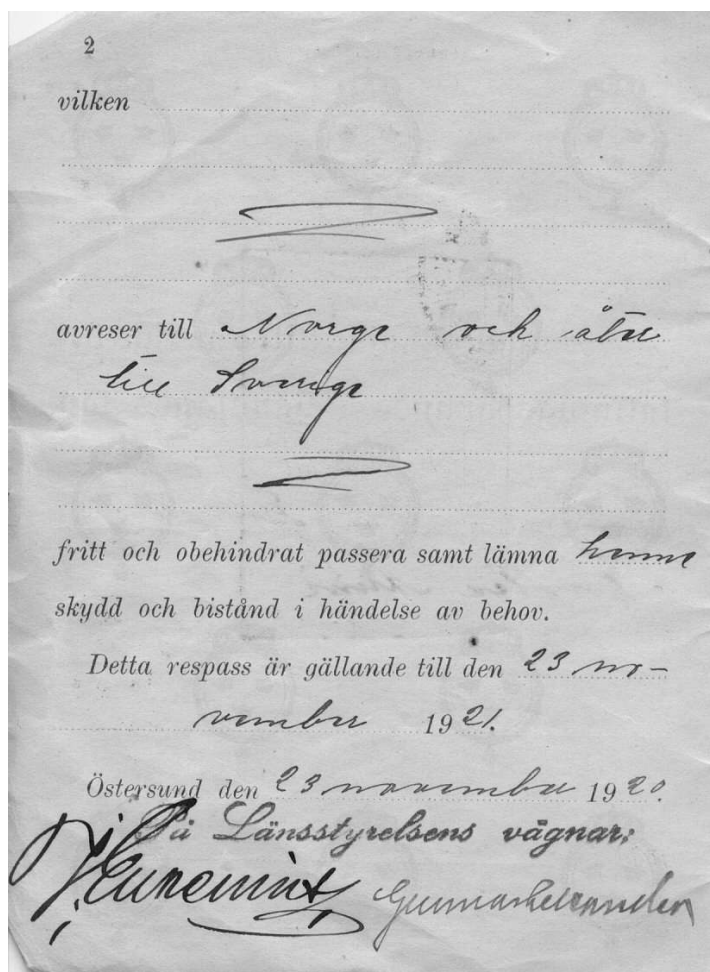 2
vilken
avreser till Norge och åter
till Sverige
fritt och obehindrat passera samt lämna henne
skydd och bistånd i händelse av behov.
Detta respass är gällande till den 23 no-
vember 1921.
Östersund den 23 november 1920.
På Länsstyrelsens vägnar: